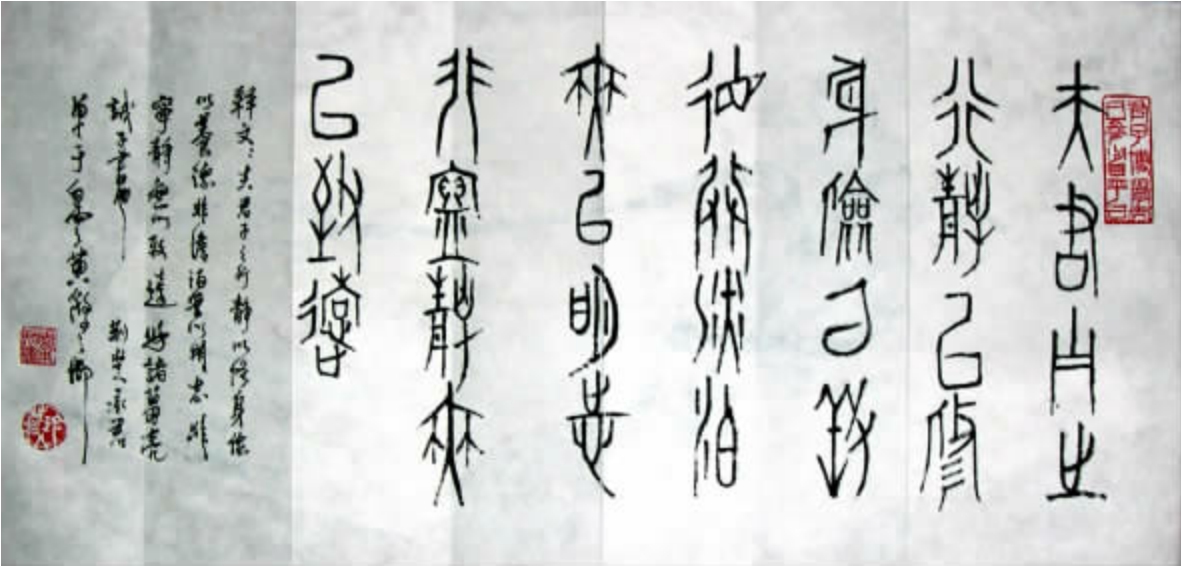 夫君子之
行靜以修
身儉以養
德非淡泊
無以明志
非寧靜無
以致遠
釋文：夫君子之行靜以修身儉
以養德非澹泊無以明志非
寧靜無以致遠 諸葛亮
誡子書